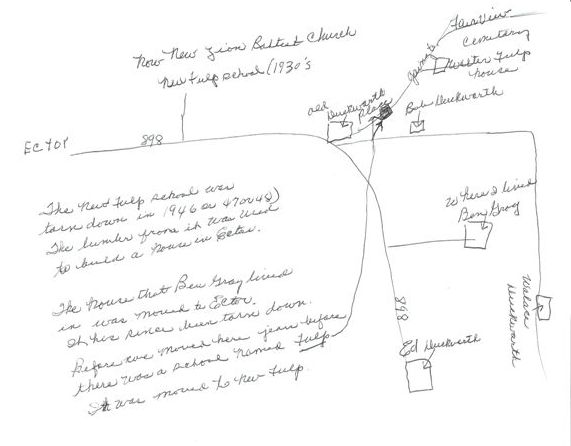 Now New Zion Baptist Church
New Fulp school (1930's
FairView
Cemetery
gravel
Walter Fulp
house
old
Duckworth
Place
Bob Duckworth
ECTOr
898
Where I lived
Ben Gray
The New Fulp school was
torn down in 1946 or 47 or 48)
The lumber from it was used
to build a house in Ector.
The house that Ben Gray lived
in was moved to Ector.
It has since been torn down.
Before we moved here years before
there was a school named Fulp
It was moved to New Fulp.
898
Ed Duckworth
Walace
Duckworth